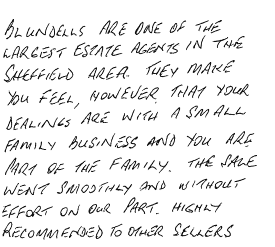 BLUNDELLS ARE ONE OF THE
LARGEST ESTATE AGENTS IN THE
SHEFFIELD AREA. THEY MAKE
YOU FEEL, HOWEVER THAT YOUR
DEALINGS ARE WITH A SMALL
FAMILY BUSINESS AND YOU ARE
PART OF THE FAMILY. THE SALE
WENT SMOOTHLY AND WITHOUT
EFFORT ON OUR PART. HIGHLY
RECOMMENDED TO OTHER SELLERS